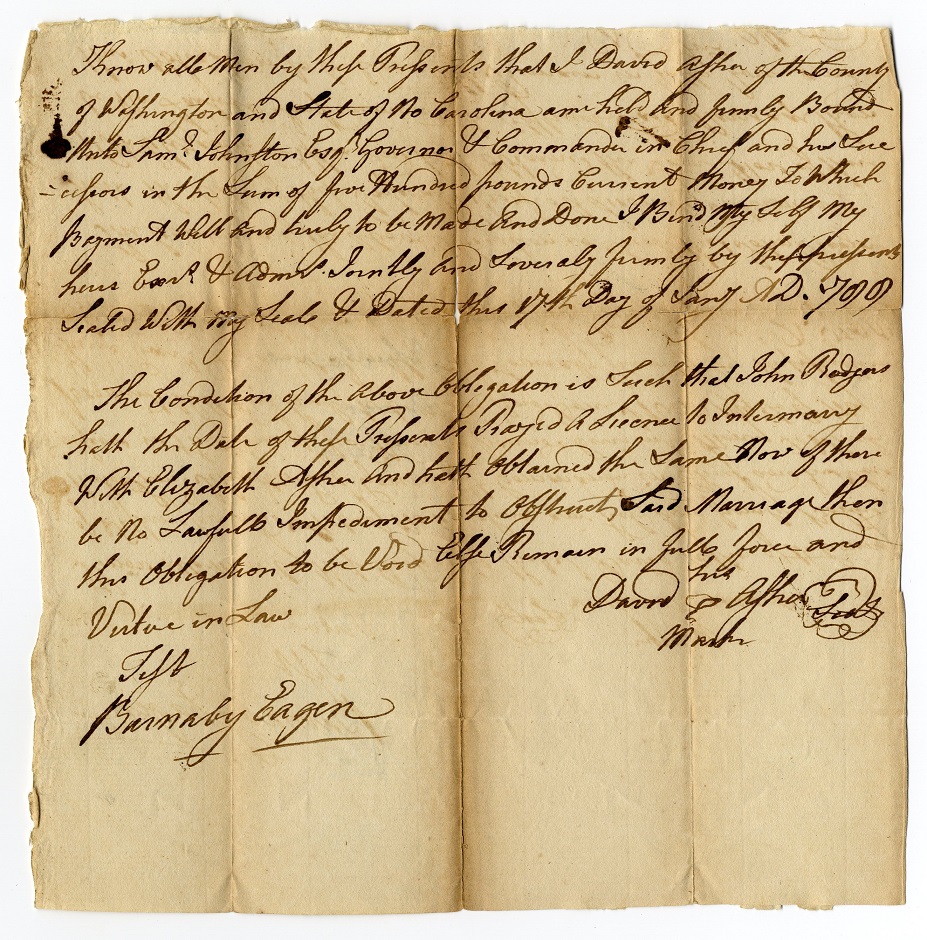 Know all Men by these Pressents that I David Asher of the County
of Washington and State of No Carolina am held and firmly Bound
Unto Saml. Johnston Esqr. Governor & Commander in Chief and his Suc
cessors in the Sum of five Hundred pounds Current Money To Which
Payment Well and truly to be Made And Done I Bind My Self My
heirs Exrs. & Admrs. Jointly and Severaly firmly by these pressents
Sealed With my Seal & Dated this 17th Day of Jany AD. 1788
The Condition of the Above Obligation is Such that John Rodgers
hath the Date of these Pressents Prayed A Licence to Intermarry
With Elizabeth Asher And hath Obtained the Same Now if there
be No Lawfull Impediment to Obstruct Said Marriage then
this Obligation to be Void Else Remain in full force and
Virtue in Law
his
David Asher Seal
Mark
Test
Barnaby Eagen